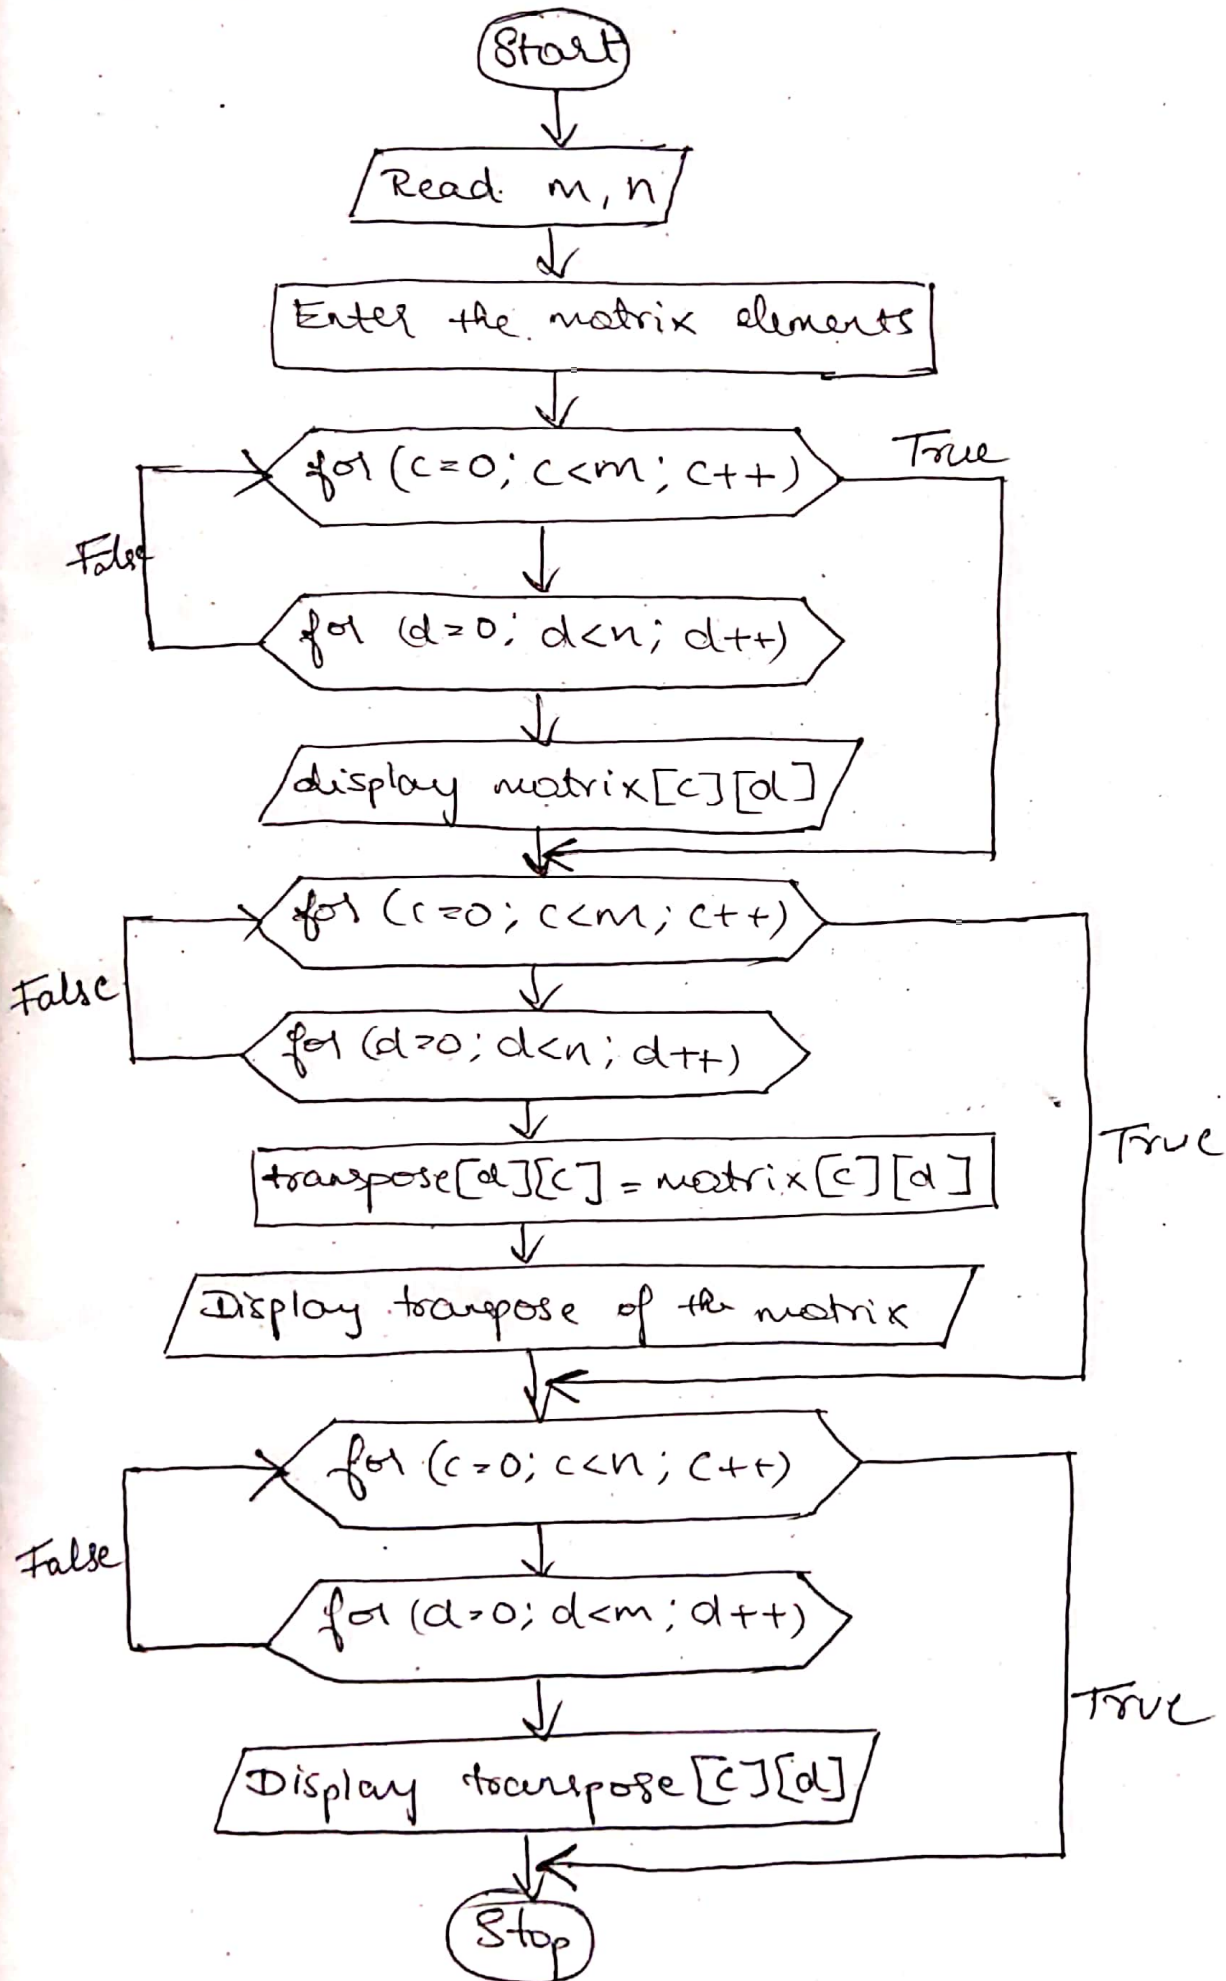 Start
Read m, n
Enter the matrix elements
for (c=0; c<m; c++)
True
False
for (d=0; d<n; d++)
display matrix[c][d]
for (c=0; c<m; c++)
False
for (d=0; d<n; d++)
True
transpose[d][c] = matrix[c][d]
Display transpose of the matrix
for (c=0; c<n; c++)
False
for (d=0; d<m; d++)
True
Display transpose[c][d]
Stop